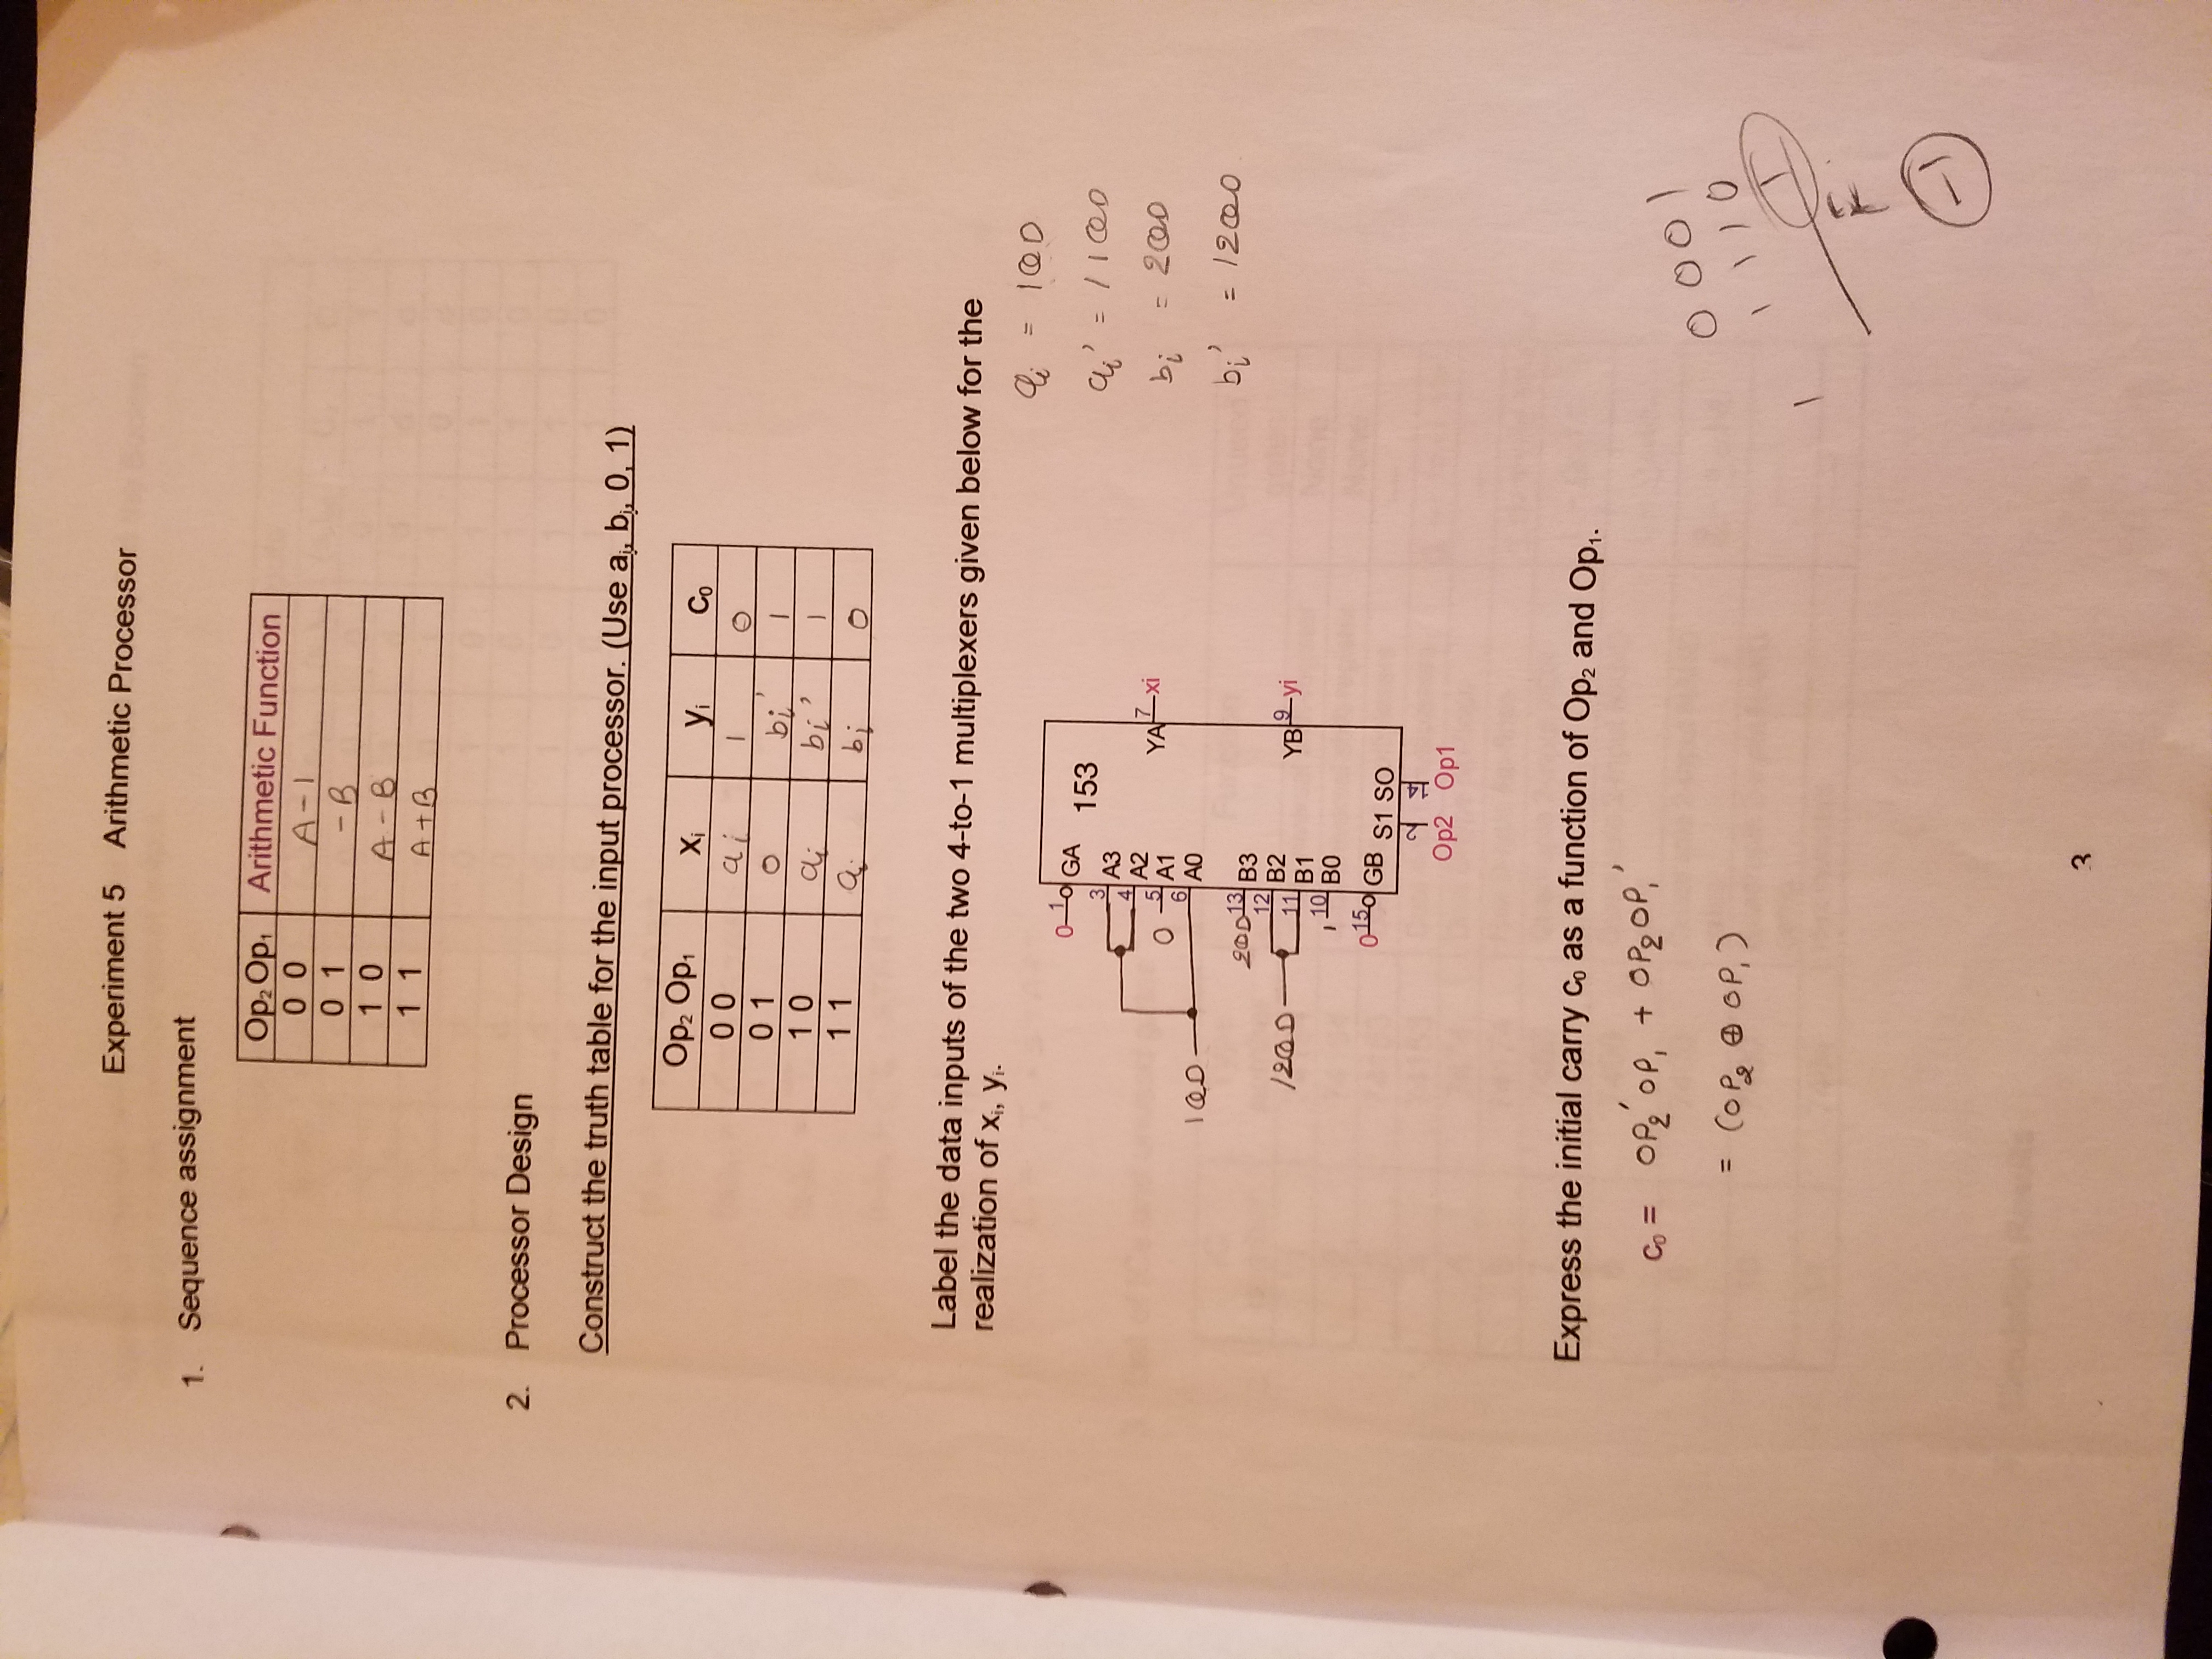 Experiment 5 Arithmetic Processor
1. Sequence assignment
Op₂ Op₁ Arithmetic Function
0 0 A-1
0 1 -B
1 0 A-B
1 1 A+B
2. Processor Design
Construct the truth table for the input processor. (Use aᵢ, bᵢ, 0, 1)
Op₂ Op₁ xᵢ yᵢ c₀
0 0 aᵢ 1 0
0 1 0 bᵢ' 1
1 0 aᵢ bᵢ' 1
1 1 aᵢ bᵢ 0
Label the data inputs of the two 4-to-1 multiplexers given below for the
realization of xᵢ, yᵢ.
aᵢ = 1Q0
aᵢ' = /1Q0
bᵢ = 2Q0
bᵢ' = /2Q0
0 1 GA 153
3 A3
4 A2
0 5 A1 YA 7 xi
1Q0 6 A0
2Q0 13 B3
/2Q0 12 B2
11 B1 YB 9 yi
1 10 B0
0 15 GB S1 SO
2 14
Op2 Op1
Express the initial carry c₀ as a function of Op₂ and Op₁.
c₀ = OP₂'OP₁ + OP₂OP₁'
= (OP₂ ⊕ OP₁)
0 0 0 1
1 1 1 0
1 1
1
3